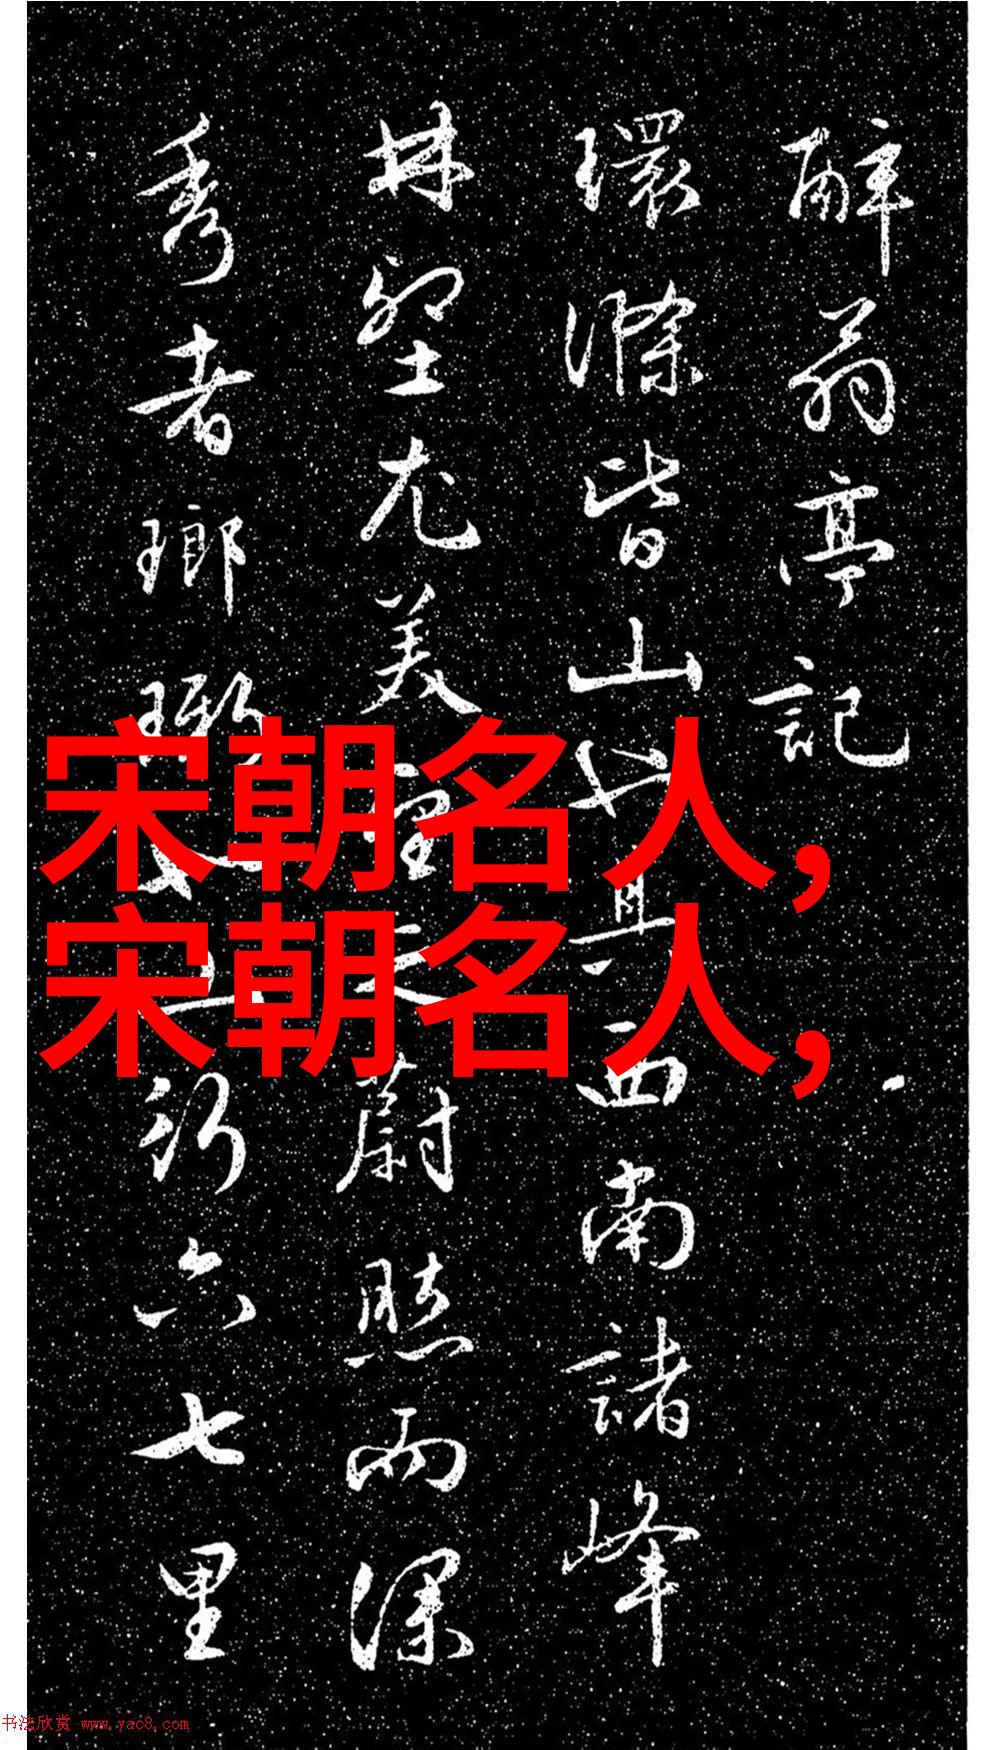 醉翁亭記
環滁皆山也其西南諸峰
林壑尤美望之蔚然而深
秀者瑯琊也山行六七里
宋朝名人,
宋朝名人,
书法欣赏 www.yac8.com